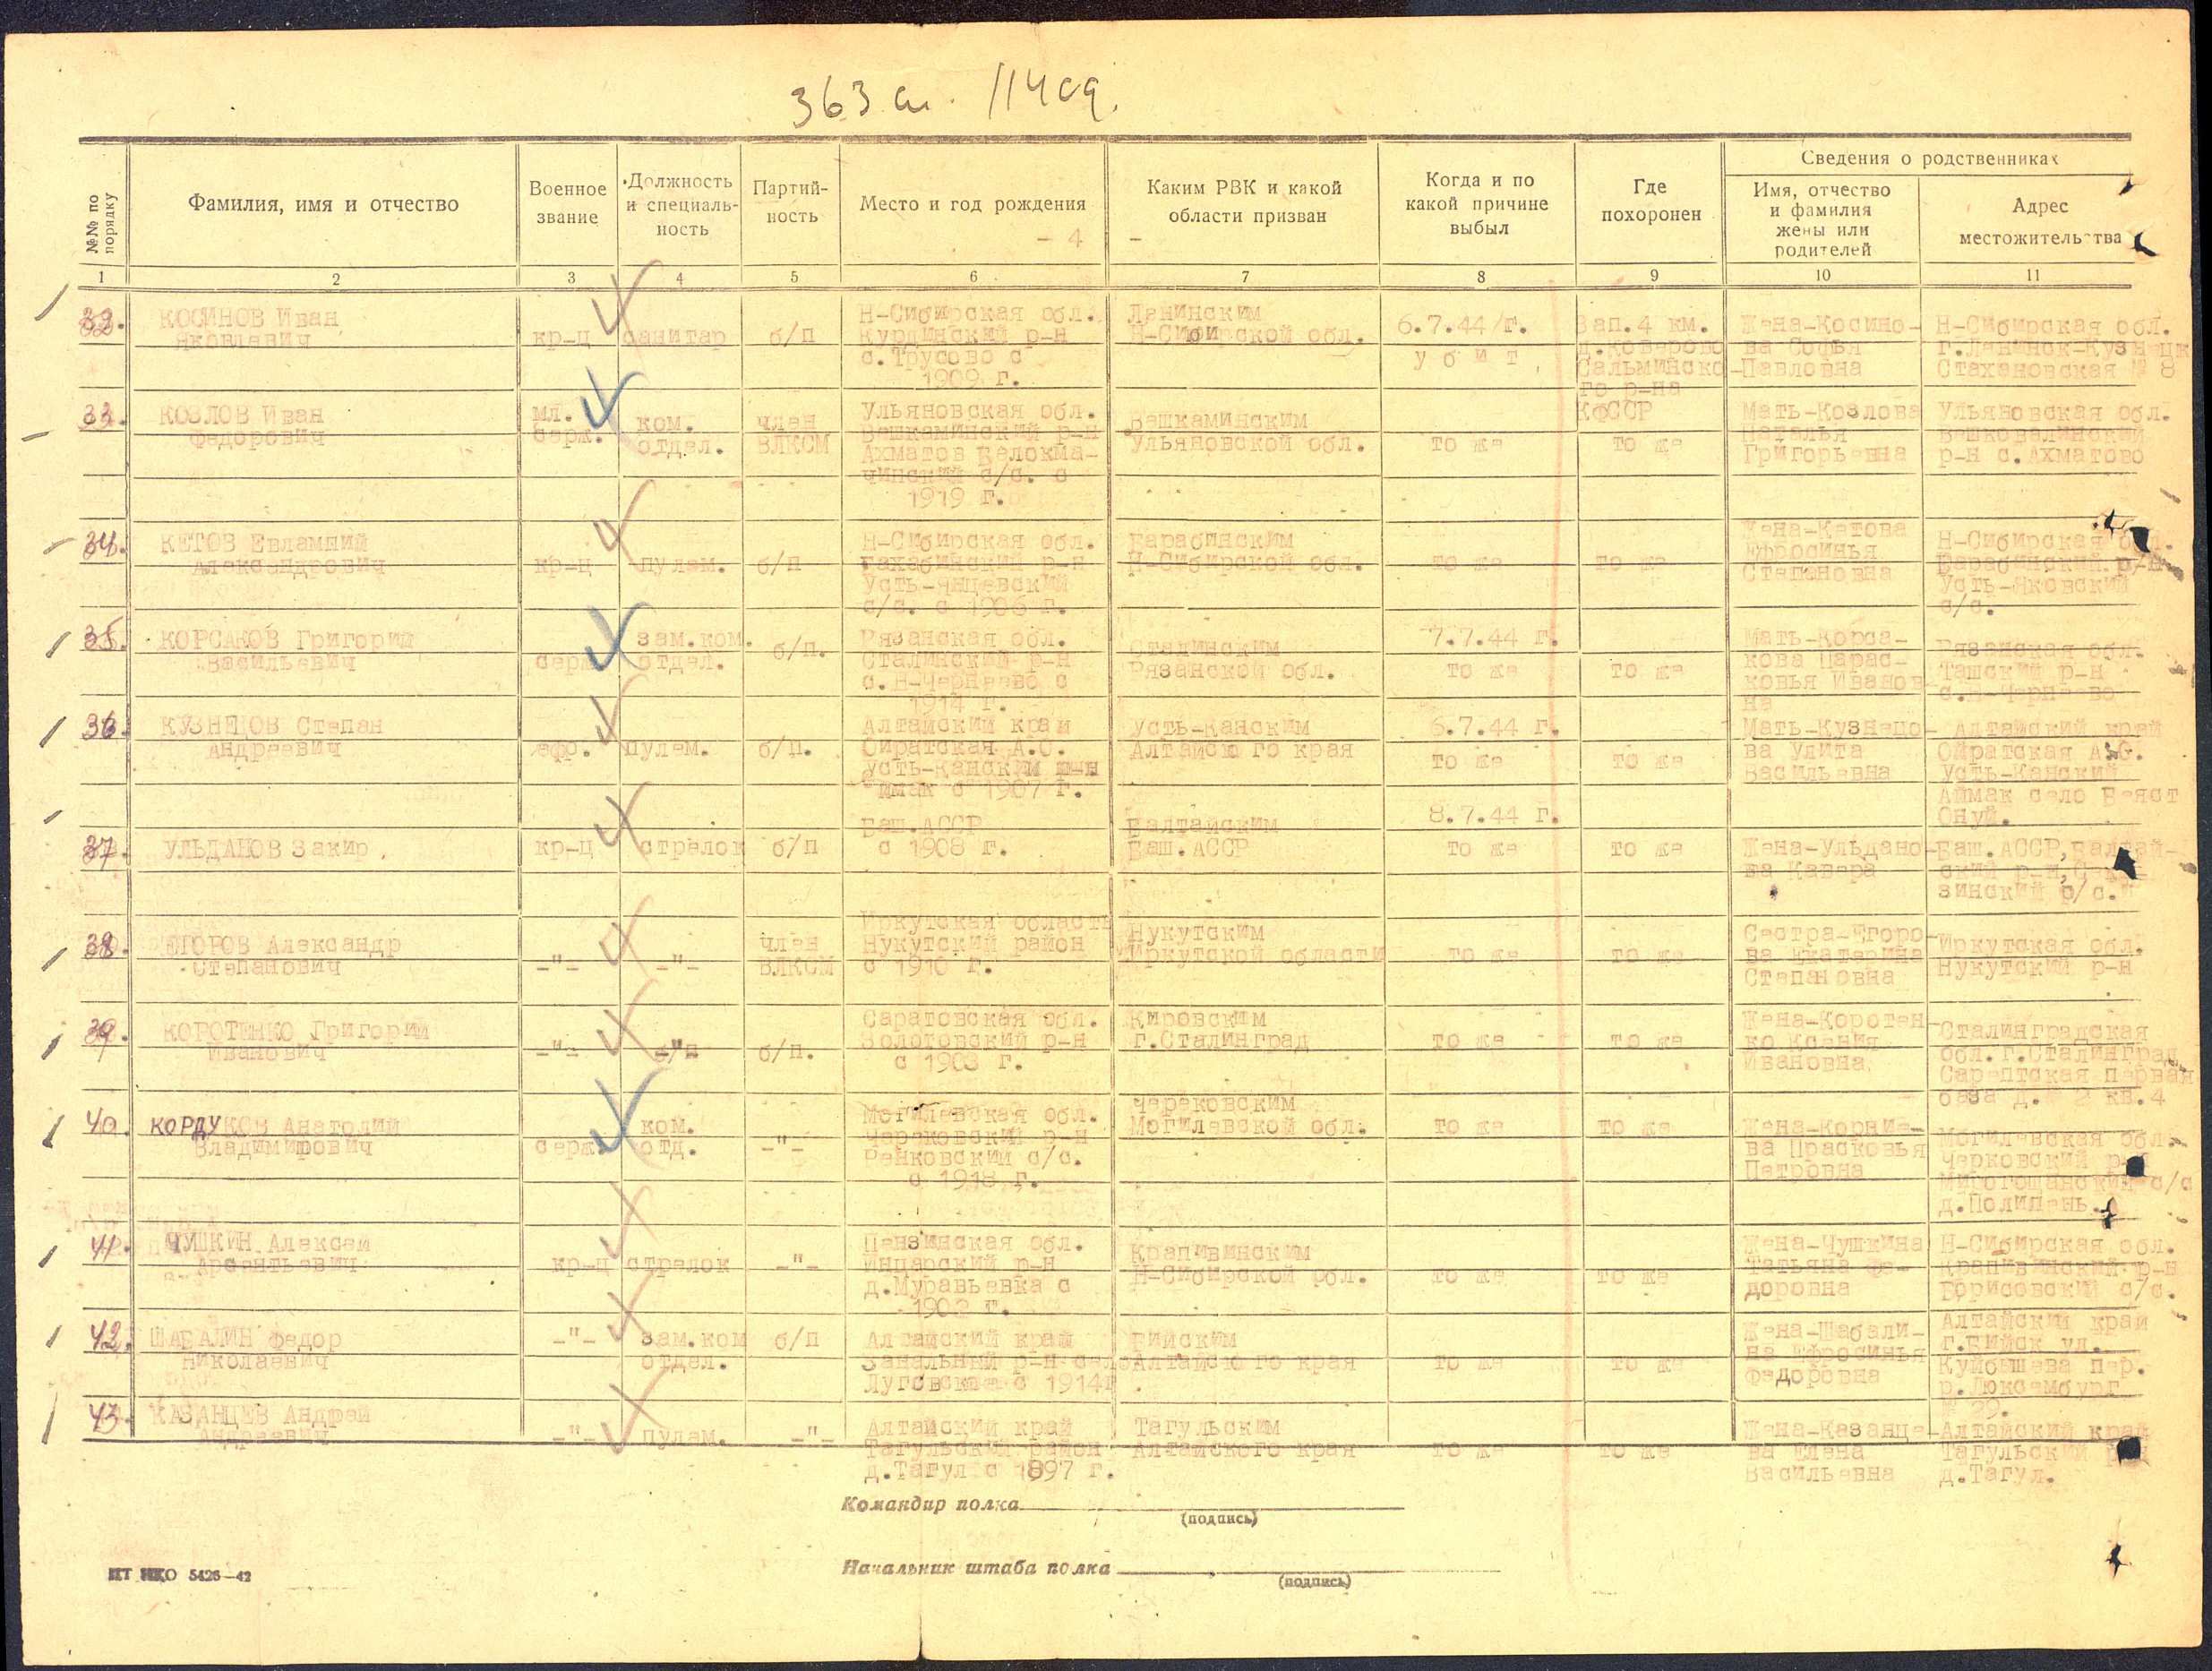 363 сп. 114 сд.
№№ по порядку
Фамилия, имя и отчество
Военное звание
Должность и специаль-ность
Партий-ность
Место и год рождения
- 4 -
Каким РВК и какой области призван
Когда и по какой причине выбыл
Где похоронен
Сведения о родственниках
Имя, отчество и фамилия жены или родителей
Адрес местожительства
1 2 3 4 5 6 7 8 9 10 11
КОСИНОВ Иван Яковлевич
кр-ц
санитар
б/п
Н-Сибирская обл.
р-н
с.Трусово с
1909 г.
Ленинским
Н-Сибирской обл.
6.7.44 г.
убит
Зап.4 км.
КФССР
Жена-Косино-
ва Софья
Павловна
Н-Сибирская обл.
г.Ленинск-Кузнецк
Стахановская № 8
33.
КОЗЛОВ Иван
Федорович
мл.
серж.
ком.
отдел.
член
ВЛКСМ
Ульяновская обл.
Вешкаминский р-н
Ахматов Белокма-
чинский с/с. с
1919 г.
Вешкаминским
Ульяновской обл.
то же
то же
Мать-Козлова
Наталья
Григорьевна
Ульяновская обл.
р-н с.Ахматово
34.
КЕТОВ Евлампий
Александрович
кр-ц
пулем.
б/п
Н-Сибирская обл.
р-н
Усть-Янцевский
с/с. с 1906 г.
Барабинским
Н-Сибирской обл.
то же
то же
Жена-Кетова
Ефросинья
Степановна
Н-Сибирская обл.
Барабинский р-н
Усть-Яковский
с/с.
35.
КОРСАКОВ Григорий
Васильевич
серж.
зам.ком.
отдел.
б/п.
Рязанская обл.
Сталинский р-н
с.Н-Чернеево с
1914 г.
Сталинским
Рязанской обл.
7.7.44 г.
то же
то же
Мать-Корса-
кова Парас-
ковья Иванов-
на
Рязанская обл.
Ташский р-н
с.Н-Чернеево
36.
КУЗНЕЦОВ Степан
Андреевич
ефр.
пулем.
б/п.
Алтайский край
Ойратская А.О.
Усть-Канский
с 1907 г.
Усть-Канским
Алтайского края
6.7.44 г.
то же
то же
Мать-Кузнецо-
ва Улита
Васильевна
Алтайский край
Ойратская А.О.
Усть-Канский
Аймак село
Онуй.
37.
УЛЬДАНОВ Закир.
кр-ц
стрелок
б/п
Баш.АССР
с 1908 г.
Балтайским
Баш.АССР
8.7.44 г.
то же
то же
Жена-Ульдано-
ва Кавера
Баш.АССР, Балтай-
ский р-н,
зинский с/с.
38.
ЕГОРОВ Александр
Степанович
-"-
-"-
член
ВЛКСМ
Иркутская область
Нукутский район
с 1910 г.
Нукутским
Иркутской области
то же
то же
Сестра-Егоро-
ва Екатерина
Степановна
Иркутская обл.
Нукутский р-н
39.
КОРОТЕНКО Григорий
Иванович
-"-
б/п.
Саратовская обл.
Золотовский р-н
с 1903 г.
Кировским
г.Сталинград
то же
то же
Жена-Коротен
ко Ксения
Ивановна
Сталинградская
обл.г.Сталинград
Сарептская первая
база д.№ 2 кв.4
40.
КОРДУКОВ Анатолий
Владимирович
серж.
ком.
отд.
-"-
Могилевская обл.
Чериковский р-н
Ренковский с/с.
с 1918 г.
Чериковским
Могилевской обл.
то же
то же
Жена-Корние-
ва Прасковья
Петровна
Могилевская обл.
р-н
с/с
д.Полипень.
41.
ЧУШКИН Алексей
Арсентьевич
кр-ц
стрелок
-"-
Пензинская обл.
Инцарский р-н
д.Муравьевка с
1902 г.
Крапивинским
Н-Сибирской обл.
то же
то же
Жена-Чушкина
Татьяна Фе-
доровна
Н-Сибирская обл.
Крапивинский р-н
Борисовский с/с.
42.
ШАБАЛИН Федор
Николаевич
-"-
зам.ком
отдел.
б/п
Алтайский край
Занальный р-н село
с 1914г
Бийским
Алтайского края
то же
то же
Жена-Шабали-
на Ефросинья
Федоровна
Алтайский край
г.Бийск ул.
Куйбышева пер.
р.Люксембург
№ 29.
43.
КАЗАНЦЕВ Андрей
Андреевич
-"-
пулем.
-"-
Алтайский край
Тагульский район
д.Тагул с 1897 г.
Тагульским
Алтайского края
то же
то же
Жена-Казанце-
ва Елена
Васильевна
Алтайский край
Тагульский р-н
д.Тагул.
Командир полка
(подпись)
Начальник штаба полка
(подпись)
НКО 5426—42